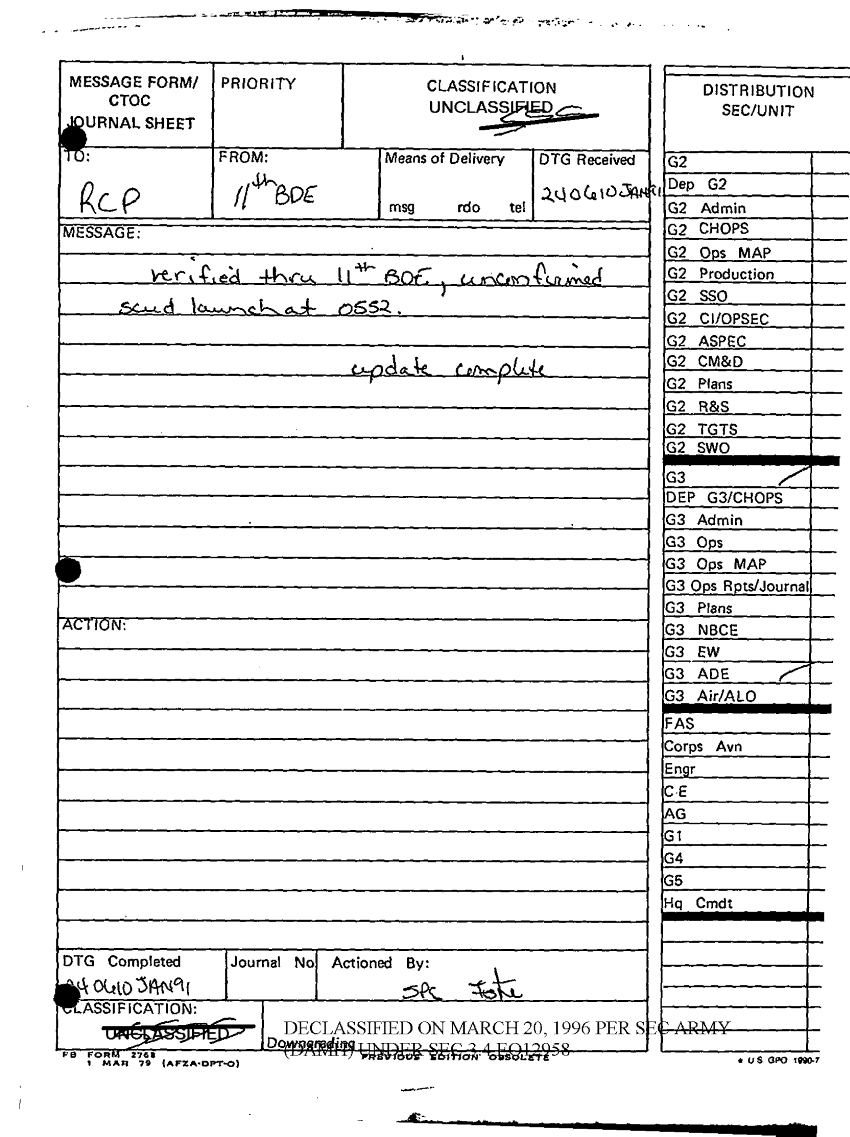 MESSAGE FORM/
CTOC
JOURNAL SHEET
PRIORITY
CLASSIFICATION
UNCLASSIFIED
TO:
RCP
FROM:
11th BDE
Means of Delivery
msg rdo tel
DTG Received
240610JAN91
MESSAGE:
verified thru 11th BDE, unconfirmed
scud launch at 0552.
update complete
ACTION:
DTG Completed
240610JAN91
Journal No
Actioned By:
SPC
CLASSIFICATION:
UNCLASSIFIED
DECLASSIFIED ON MARCH 20, 1996 PER SEC ARMY
Downgrading
(DAMH) UNDER SEC 3.4 EO12958
FB FORM 2768
1 MAR 79 (AFZA-DPT-O)
PREVIOUS EDITION OBSOLETE
* US GPO 1990-7
DISTRIBUTION
SEC/UNIT
G2
Dep G2
G2 Admin
G2 CHOPS
G2 Ops MAP
G2 Production
G2 SSO
G2 CI/OPSEC
G2 ASPEC
G2 CM&D
G2 Plans
G2 R&S
G2 TGTS
G2 SWO
G3
DEP G3/CHOPS
G3 Admin
G3 Ops
G3 Ops MAP
G3 Ops Rpts/Journal
G3 Plans
G3 NBCE
G3 EW
G3 ADE
G3 Air/ALO
FAS
Corps Avn
Engr
C-E
AG
G1
G4
G5
Hq Cmdt